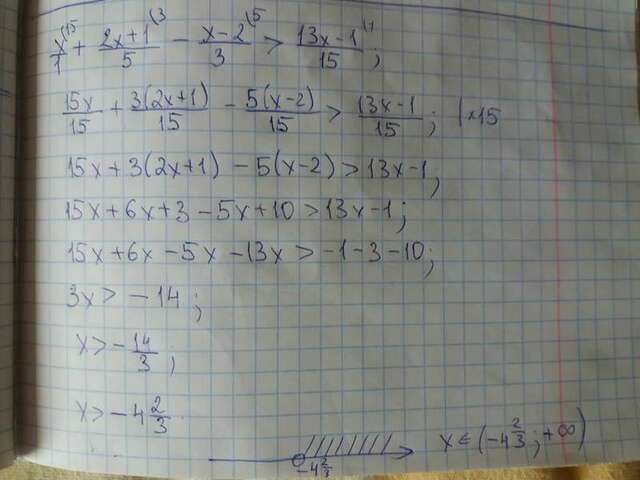 x/1 (15 + (2x+1)/5 (3 - (x-2)/3 (5 > (13x-1)/15 (1 ;
15x/15 + 3(2x+1)/15 - 5(x-2)/15 > (13x-1)/15 ; | ×15
15x + 3(2x+1) - 5(x-2) > 13x-1 ;
15x + 6x + 3 - 5x + 10 > 13x - 1 ;
15x + 6x - 5x - 13x > -1 - 3 - 10 ;
3x > -14 ;
x > -14/3 ;
x > -4 2/3 ;
-4 2/3
x ∈ (-4 2/3 ; +∞)